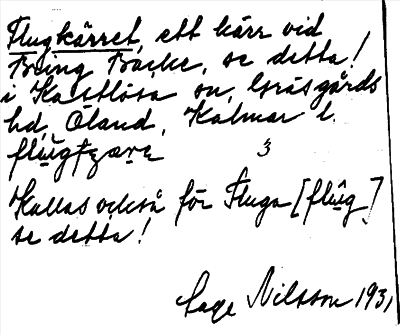 Flugkärret, ett kärr vid
Bring Backe, se detta!
i Kastlösa sn, Gräsgårds
hd, Öland, Kalmar l.
3
Kallas också för Fluga [flûg]
se detta!
Åage Nilsson 1931